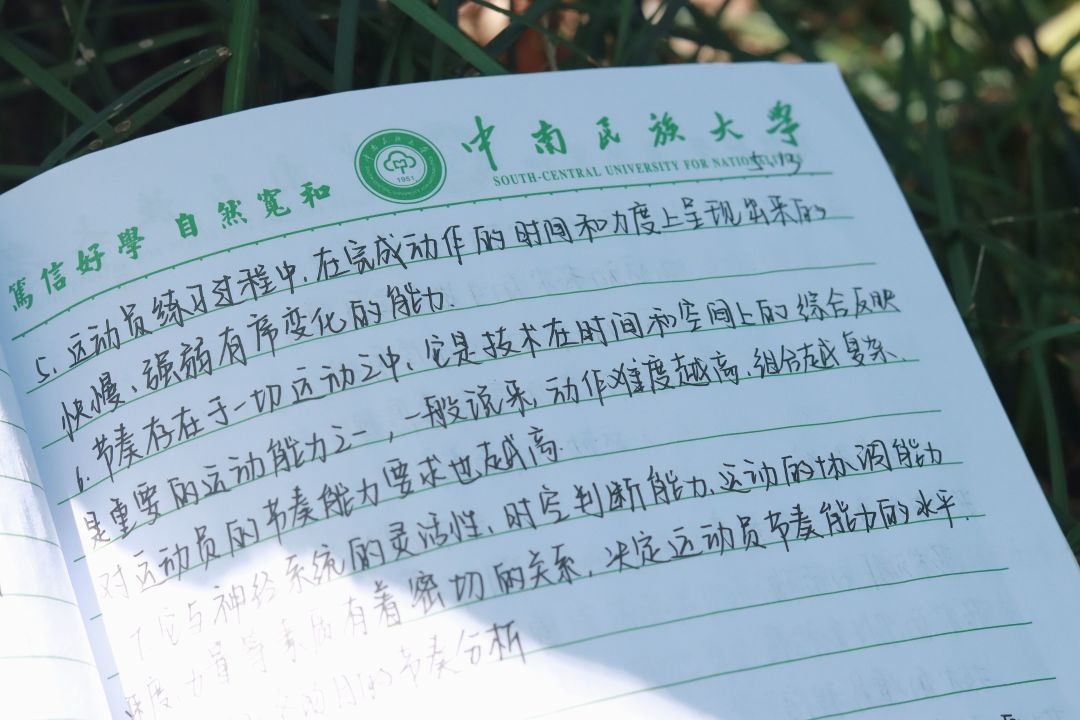 篤信好學 自然寬和
中南民族大學
SOUTH-CENTRAL UNIVERSITY FOR NATIONALITIES
1951
5.13
5. 运动员练习过程中,在完成动作的时间和力度上呈现出来的
快慢、强弱有序变化的能力.
6. 节奏存在于一切运动之中,它是技术在时间和空间上的综合反映
是重要的运动能力之一,一般说来,动作难度越高,组合越复杂.
对运动员的节奏能力要求也越高.
7 它与神经系统的灵活性、时空判断能力、运动的协调能力
速度、力量等素质有着密切的关系,决定运动员节奏能力的水平.
的节奏分析